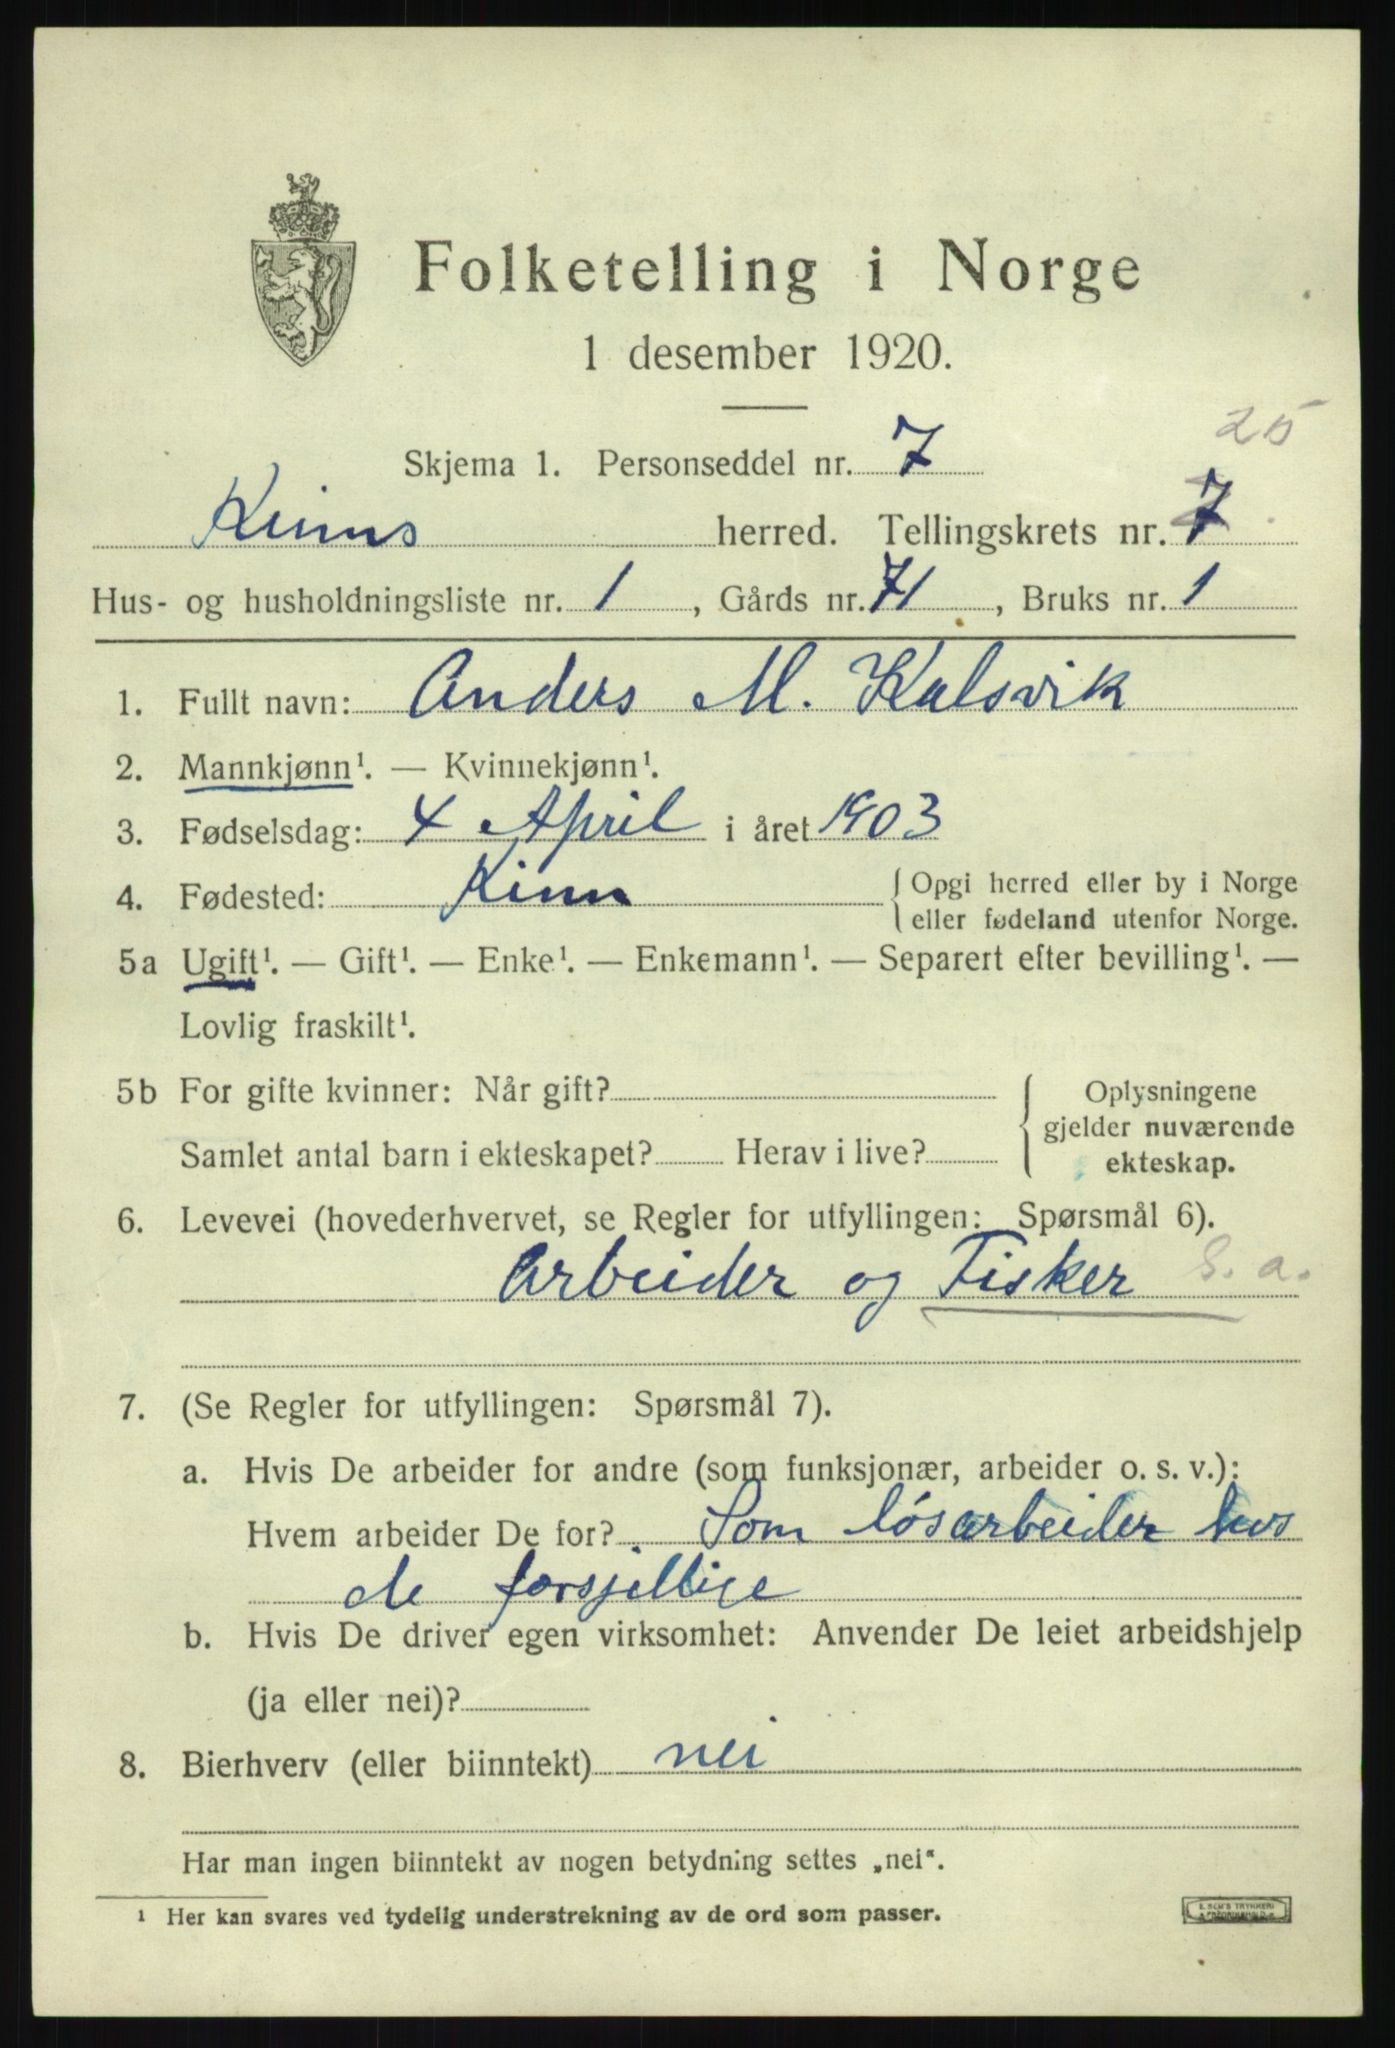 Folketelling i Norge
1 desember 1920.
25
Skjema 1. Personseddel nr. 7
Kinns herred. Tellingskrets nr. 7
Hus- og husholdningsliste nr. 1, Gårds nr. 71, Bruks nr. 1
1. Fullt navn: Anders M. Kalsvik
2. Mannkjønn¹. — Kvinnekjønn¹.
3. Fødselsdag: 4 April i året 1903
4. Fødested: Kinn { Opgi herred eller by i Norge
eller fødeland utenfor Norge.
5a Ugift¹. — Gift¹. — Enke¹. — Enkemann¹. — Separert efter bevilling¹. —
Lovlig fraskilt¹.
5b For gifte kvinner: Når gift? { Oplysningene
gjelder nuværende
Samlet antal barn i ekteskapet? Herav i live? ekteskap.
6. Levevei (hovederhvervet, se Regler for utfyllingen: Spørsmål 6).
Arbeider og Fisker S. a.
7. (Se Regler for utfyllingen: Spørsmål 7).
a. Hvis De arbeider for andre (som funksjonær, arbeider o. s. v.):
Hvem arbeider De for? Som lósarbeider hos
de forsjillige
b. Hvis De driver egen virksomhet: Anvender De leiet arbeidshjelp
(ja eller nei)?
8. Bierhverv (eller biinntekt) nei
Har man ingen biinntekt av nogen betydning settes „nei“.
¹ Her kan svares ved tydelig understrekning av de ord som passer.